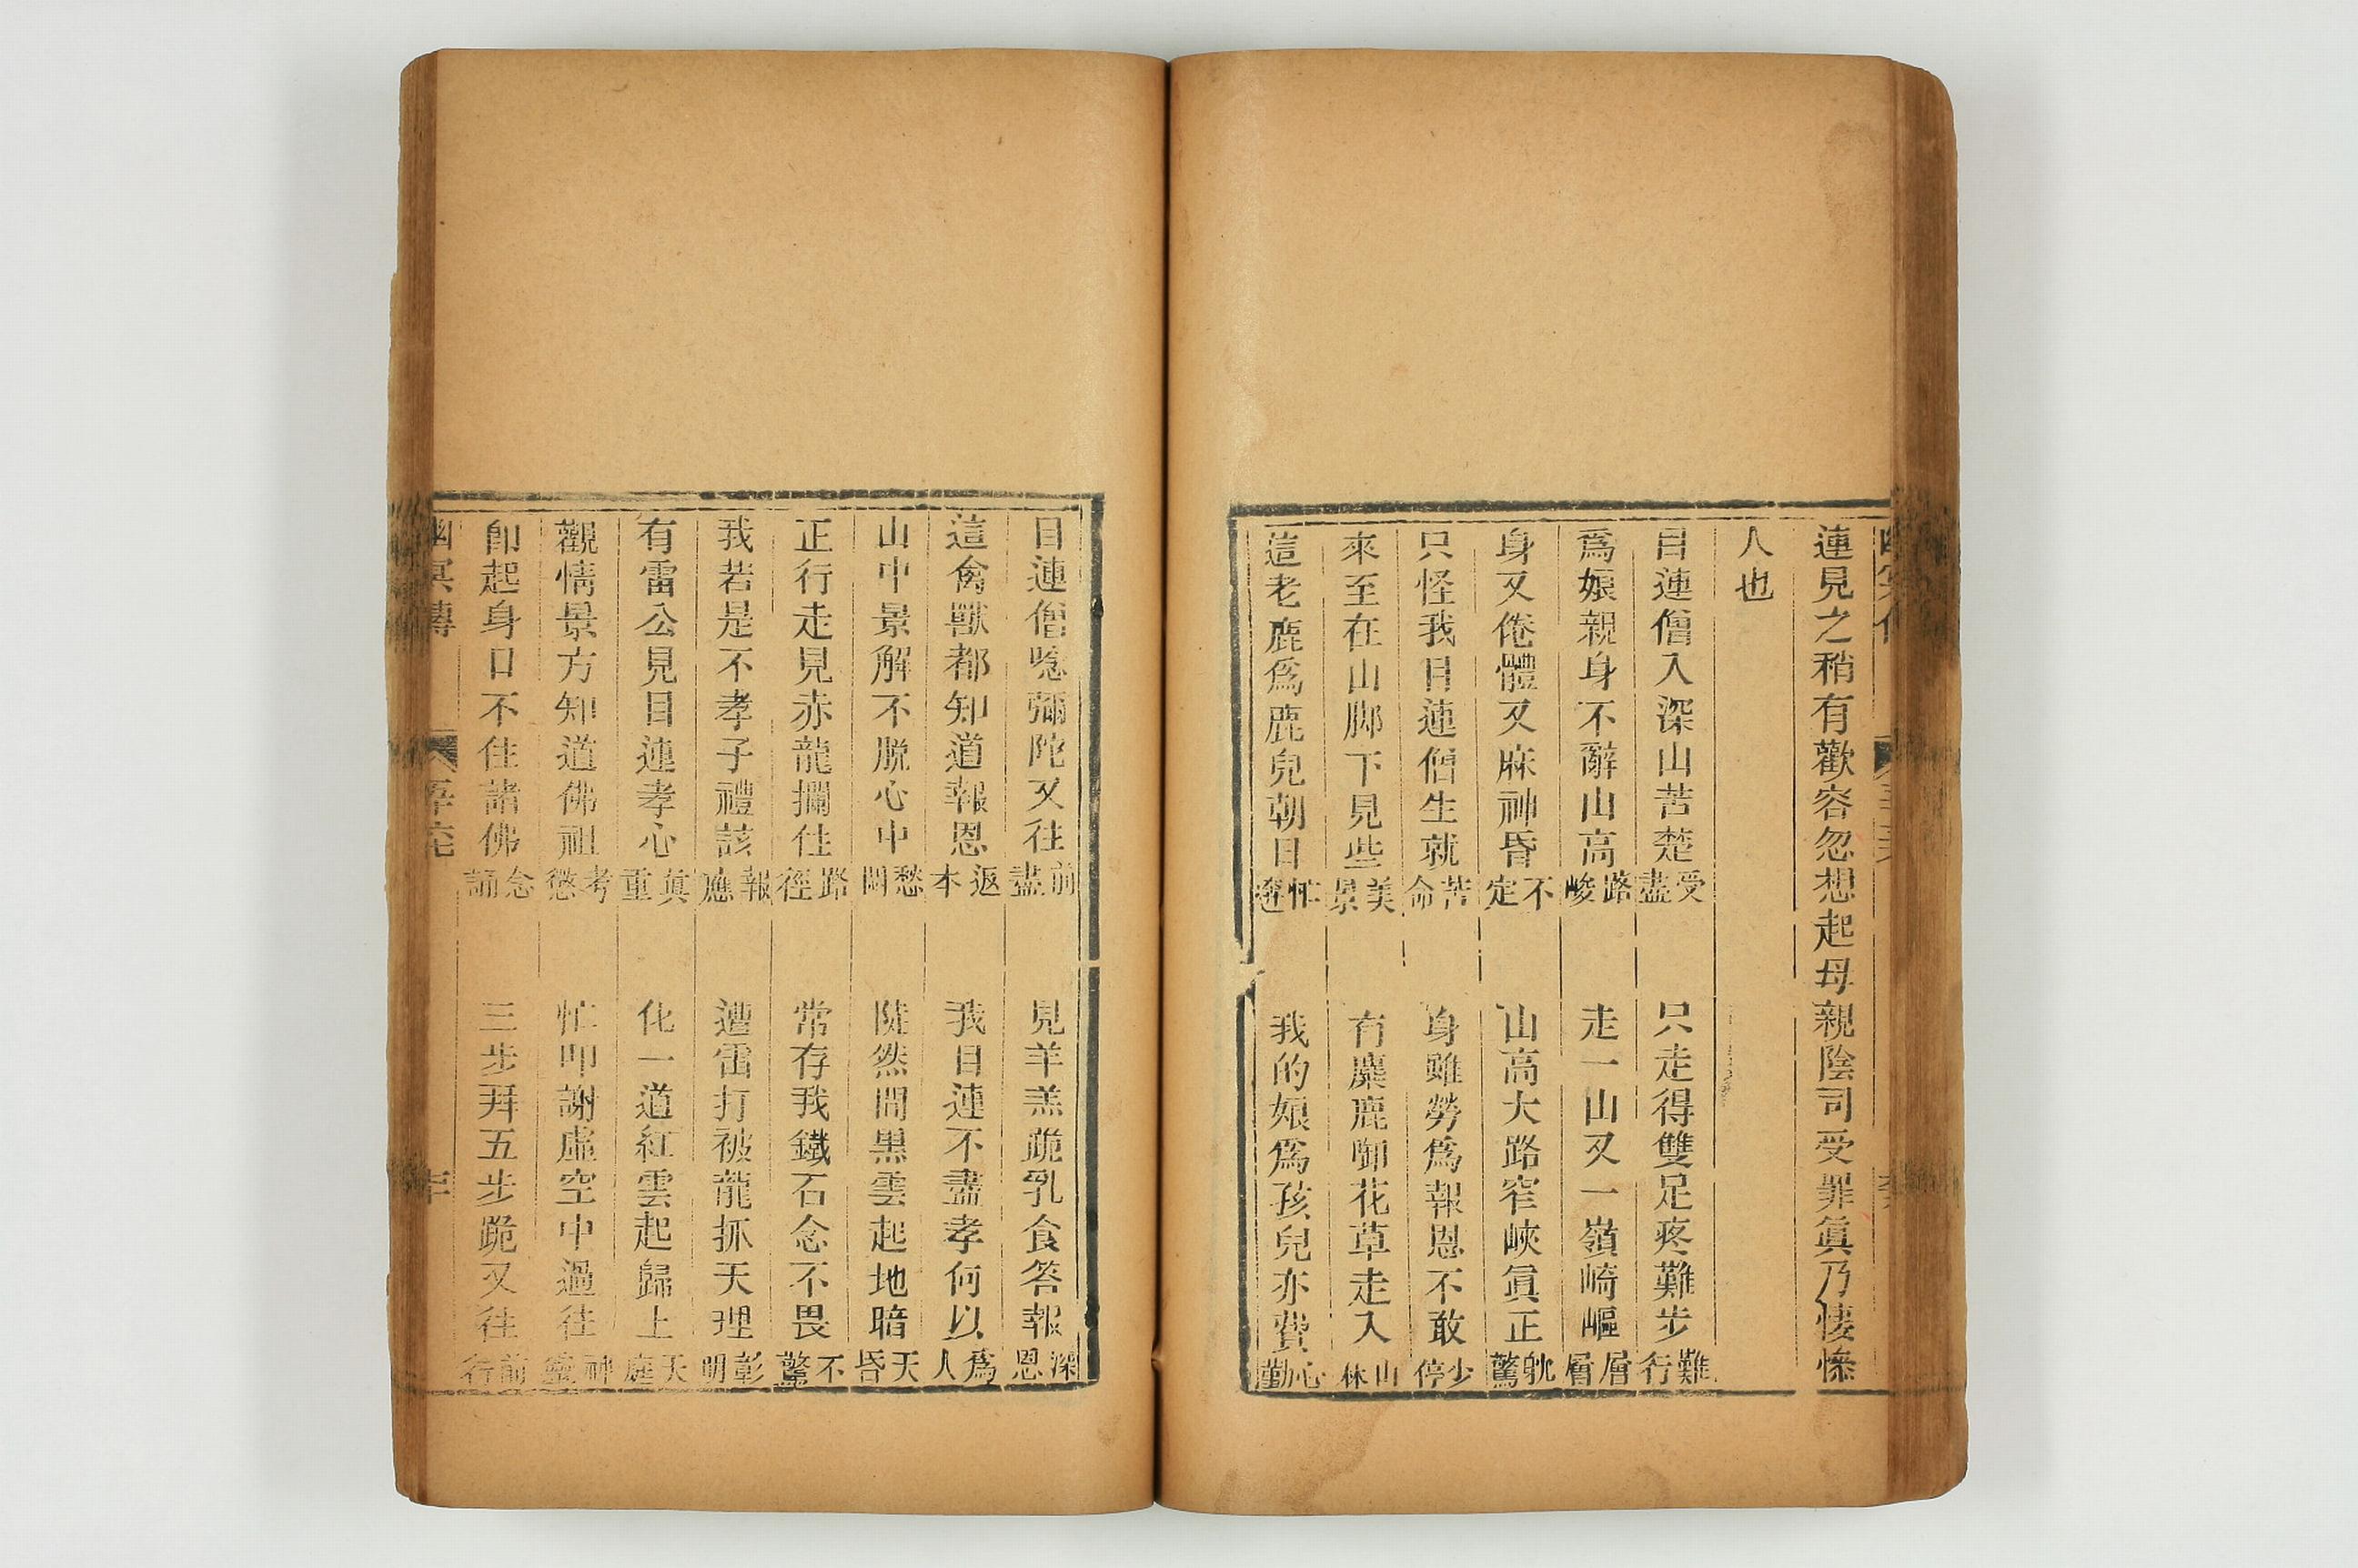 連見之稍有歡容忽想起母親陰司受罪眞乃悽慘
人也
目連僧入深山苦楚受盡　只走得雙足疼難步難行
爲娘親身不辭山高路峻　走一山又一嶺崎嶇層層
身又倦體又麻神昏不定　山高大路窄峽眞正躭驚
只怪我目連僧生就苦命　身雖勞爲報恩不敢少停
來至在山脚下見些美景　有麋鹿啣花草走入山林
這老鹿爲鹿兒朝日忙奔　我的娘爲孩兒亦費心勤
目連僧唸彌陀又往前盡　見羊羔跪乳食答報深恩
這禽獸都知道報恩返本　我目連不盡孝何以爲人
山中景解不脱心中愁悶　陡然間黑雲起地暗天昏
正行走見赤龍攔住路徑　常存我鐵石念不畏不驚
我若是不孝子禮該報應　遭雷打被龍抓天理彰明
有雷公見目連孝心眞重　化一道紅雲起歸上天庭
觀情景方知道佛祖考懲　忙叩謝虛空中過往神靈
卽起身口不住諸佛念誦　三步拜五步跪又往前行
幽冥傳